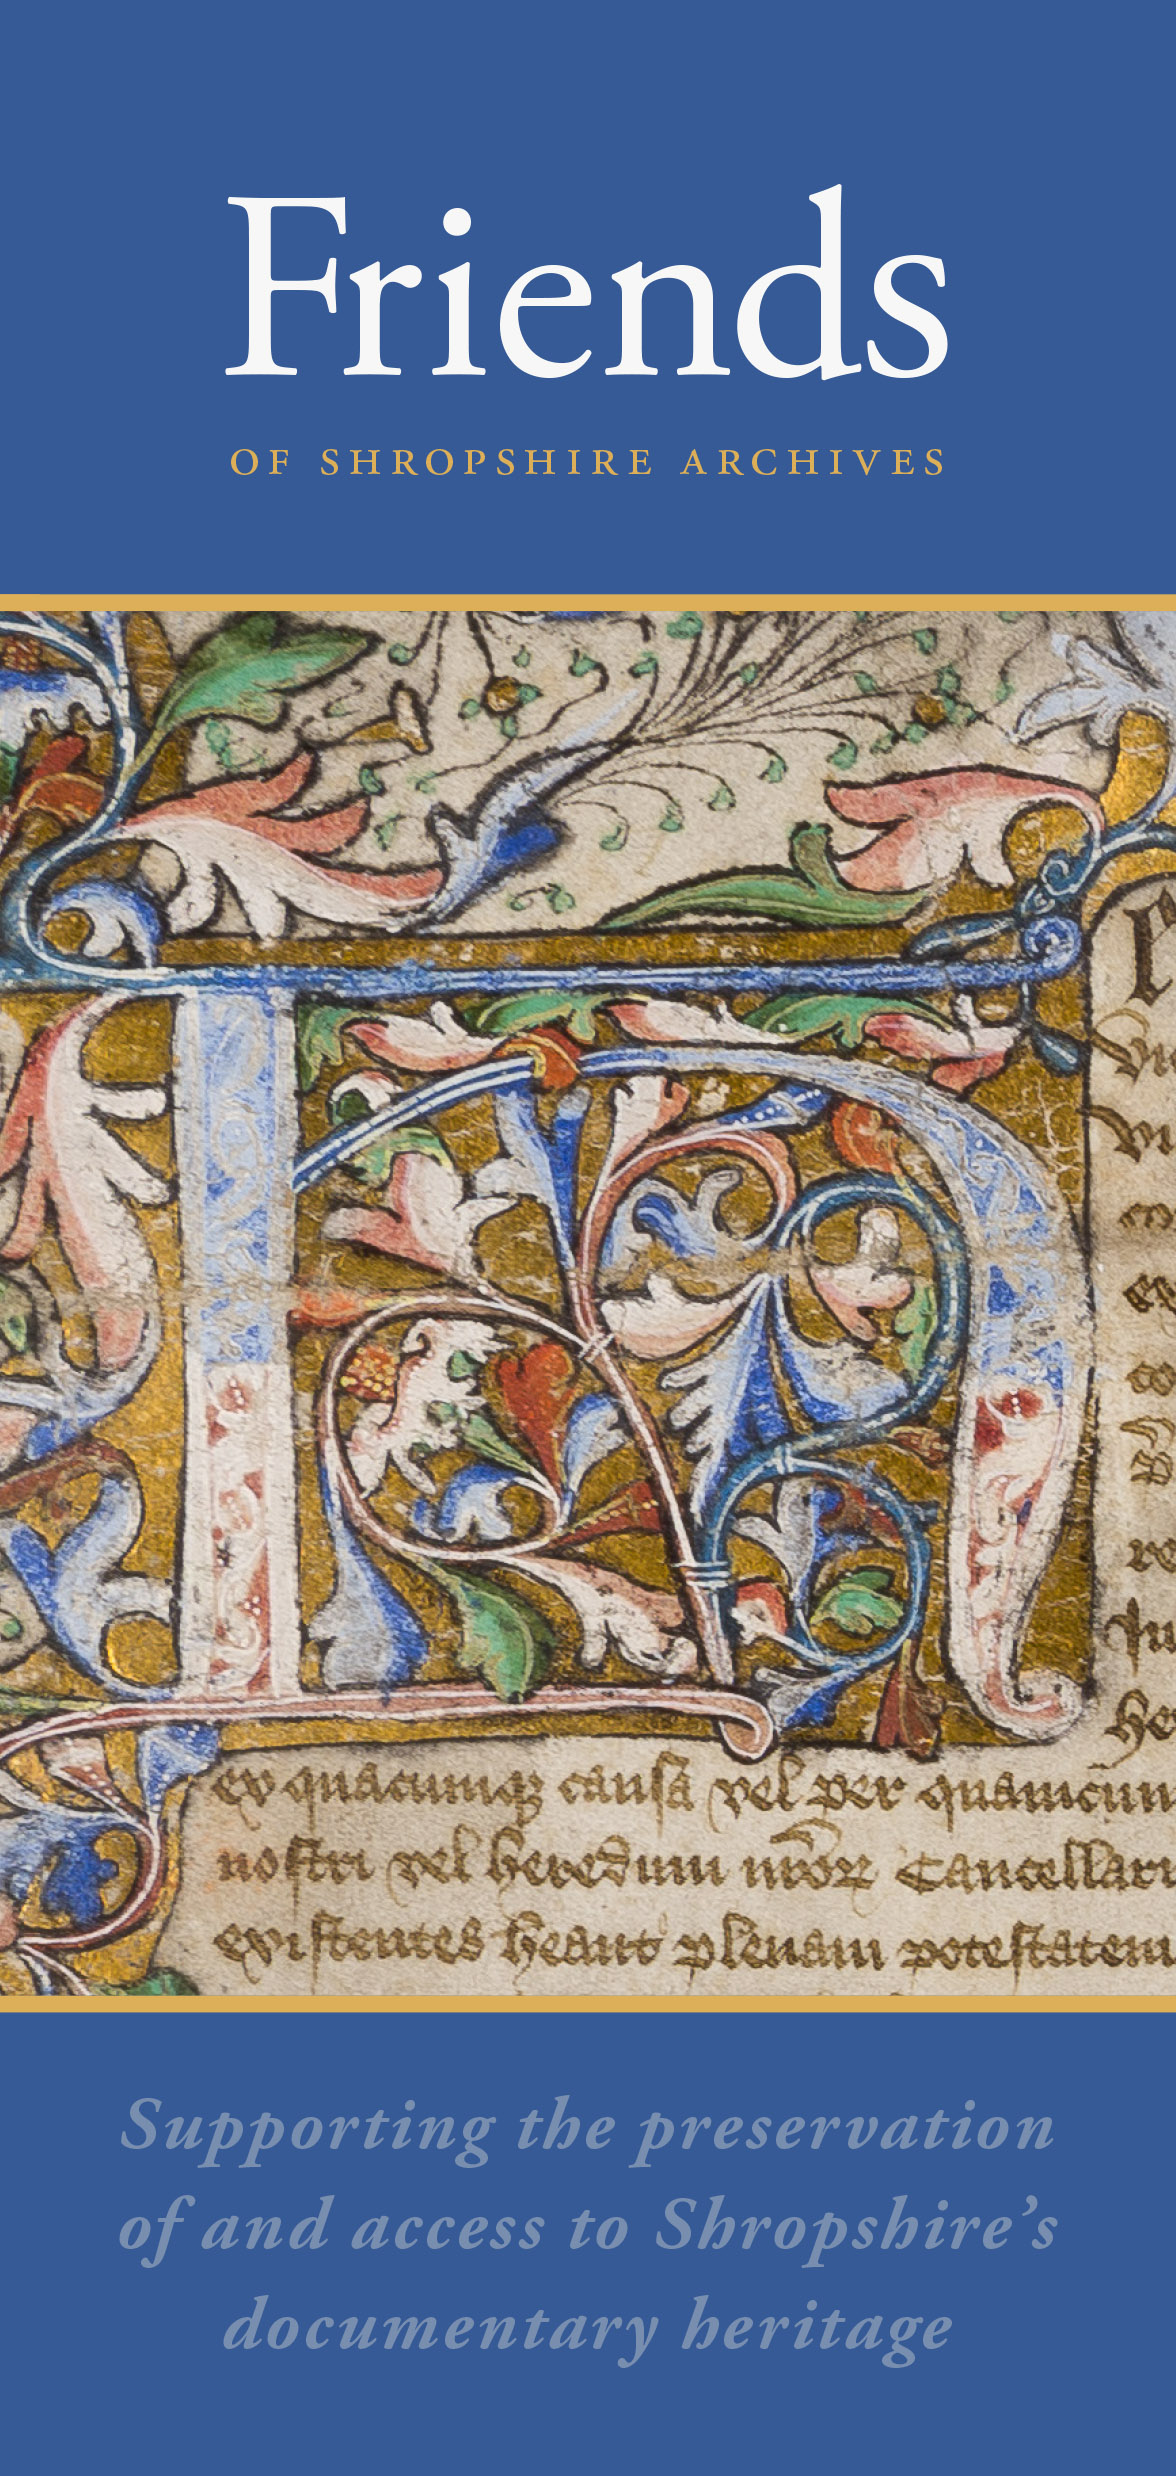 Friends
OF SHROPSHIRE ARCHIVES
ex quacumqz causa vel per quamcum
nostri vel heredum nror Cancellari
existentes heant plenam potestatem
Supporting the preservation
of and access to Shropshire’s
documentary heritage